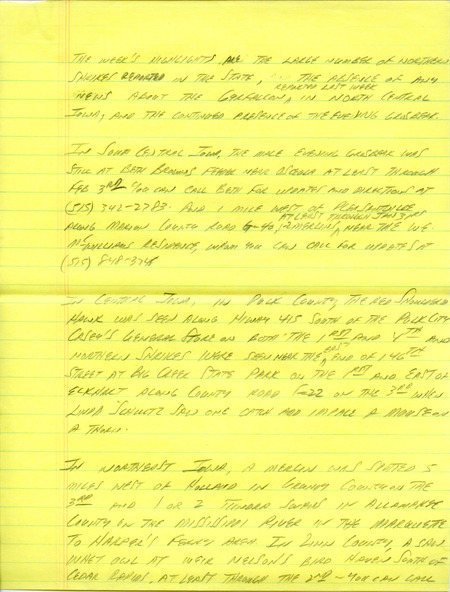 THE WEEK'S HIGHLIGHTS ARE THE LARGE NUMBER OF NORTHERN
SHRIKES REPORTED IN THE STATE, THE ABSENCE OF ANY
REPORTED LAST WEEK
NEWS ABOUT THE GYRFALCON, IN NORTH CENTRAL
IOWA, AND THE CONTINUED PRESENCE OF THE EVENING GROSBEAK.
IN SOUTH CENTRAL IOWA, THE MALE EVENING GROSBEAK WAS
STILL AT BETH BROWN'S FEEDER NEAR OSCEOLA AT LEAST THROUGH
FEB 3RD. YOU CAN CALL BETH FOR UPDATES AND DIRECTIONS AT
(515) 342-2783. AND 1 MILE WEST OF PLEASANTVILLE
AT LEAST THROUGH JAN 31ST
ALONG MARION COUNTY ROAD G-40, MERLINS, NEAR THE
MCWILLIAMS RESIDENCE, WHOM YOU CAN CALL FOR UPDATES AT
(515) 848-
IN CENTRAL IOWA, IN POLK COUNTY, THE RED SHOULDERED
HAWK WAS SEEN ALONG HIWAY 415 SOUTH OF THE POLK CITY
CASEY'S GENERAL STORE ON BOTH THE 1ST AND 4TH AND
EAST
NORTHERN SHRIKES WERE SEEN NEAR THE END OF 146TH
STREET AT BIG CREEK STATE PARK ON THE 1ST AND EAST OF
ELKHART ALONG COUNTY ROAD F-22 ON THE 3RD WHEN
LINDA SCHULTZ SAW ONE CATCH AND IMPALE A MOUSE ON
A THORN.
IN NORTHEAST IOWA, A MERLIN WAS SPOTTED 5
MILES WEST OF HOLLAND IN GRUNDY COUNTY ON THE
3RD AND 1 OR 2 TUNDRA SWANS IN ALLAMAKEE
COUNTY ON THE MISSISSIPPI RIVER IN THE MARQUETTE
TO HARPER'S FERRY AREA. IN LINN COUNTY, A SAW
WHET OWL AT WEIR NELSON'S BIRD HAVEN SOUTH OF
CEDAR RAPIDS, AT LEAST THROUGH THE 2ND - YOU CAN CALL